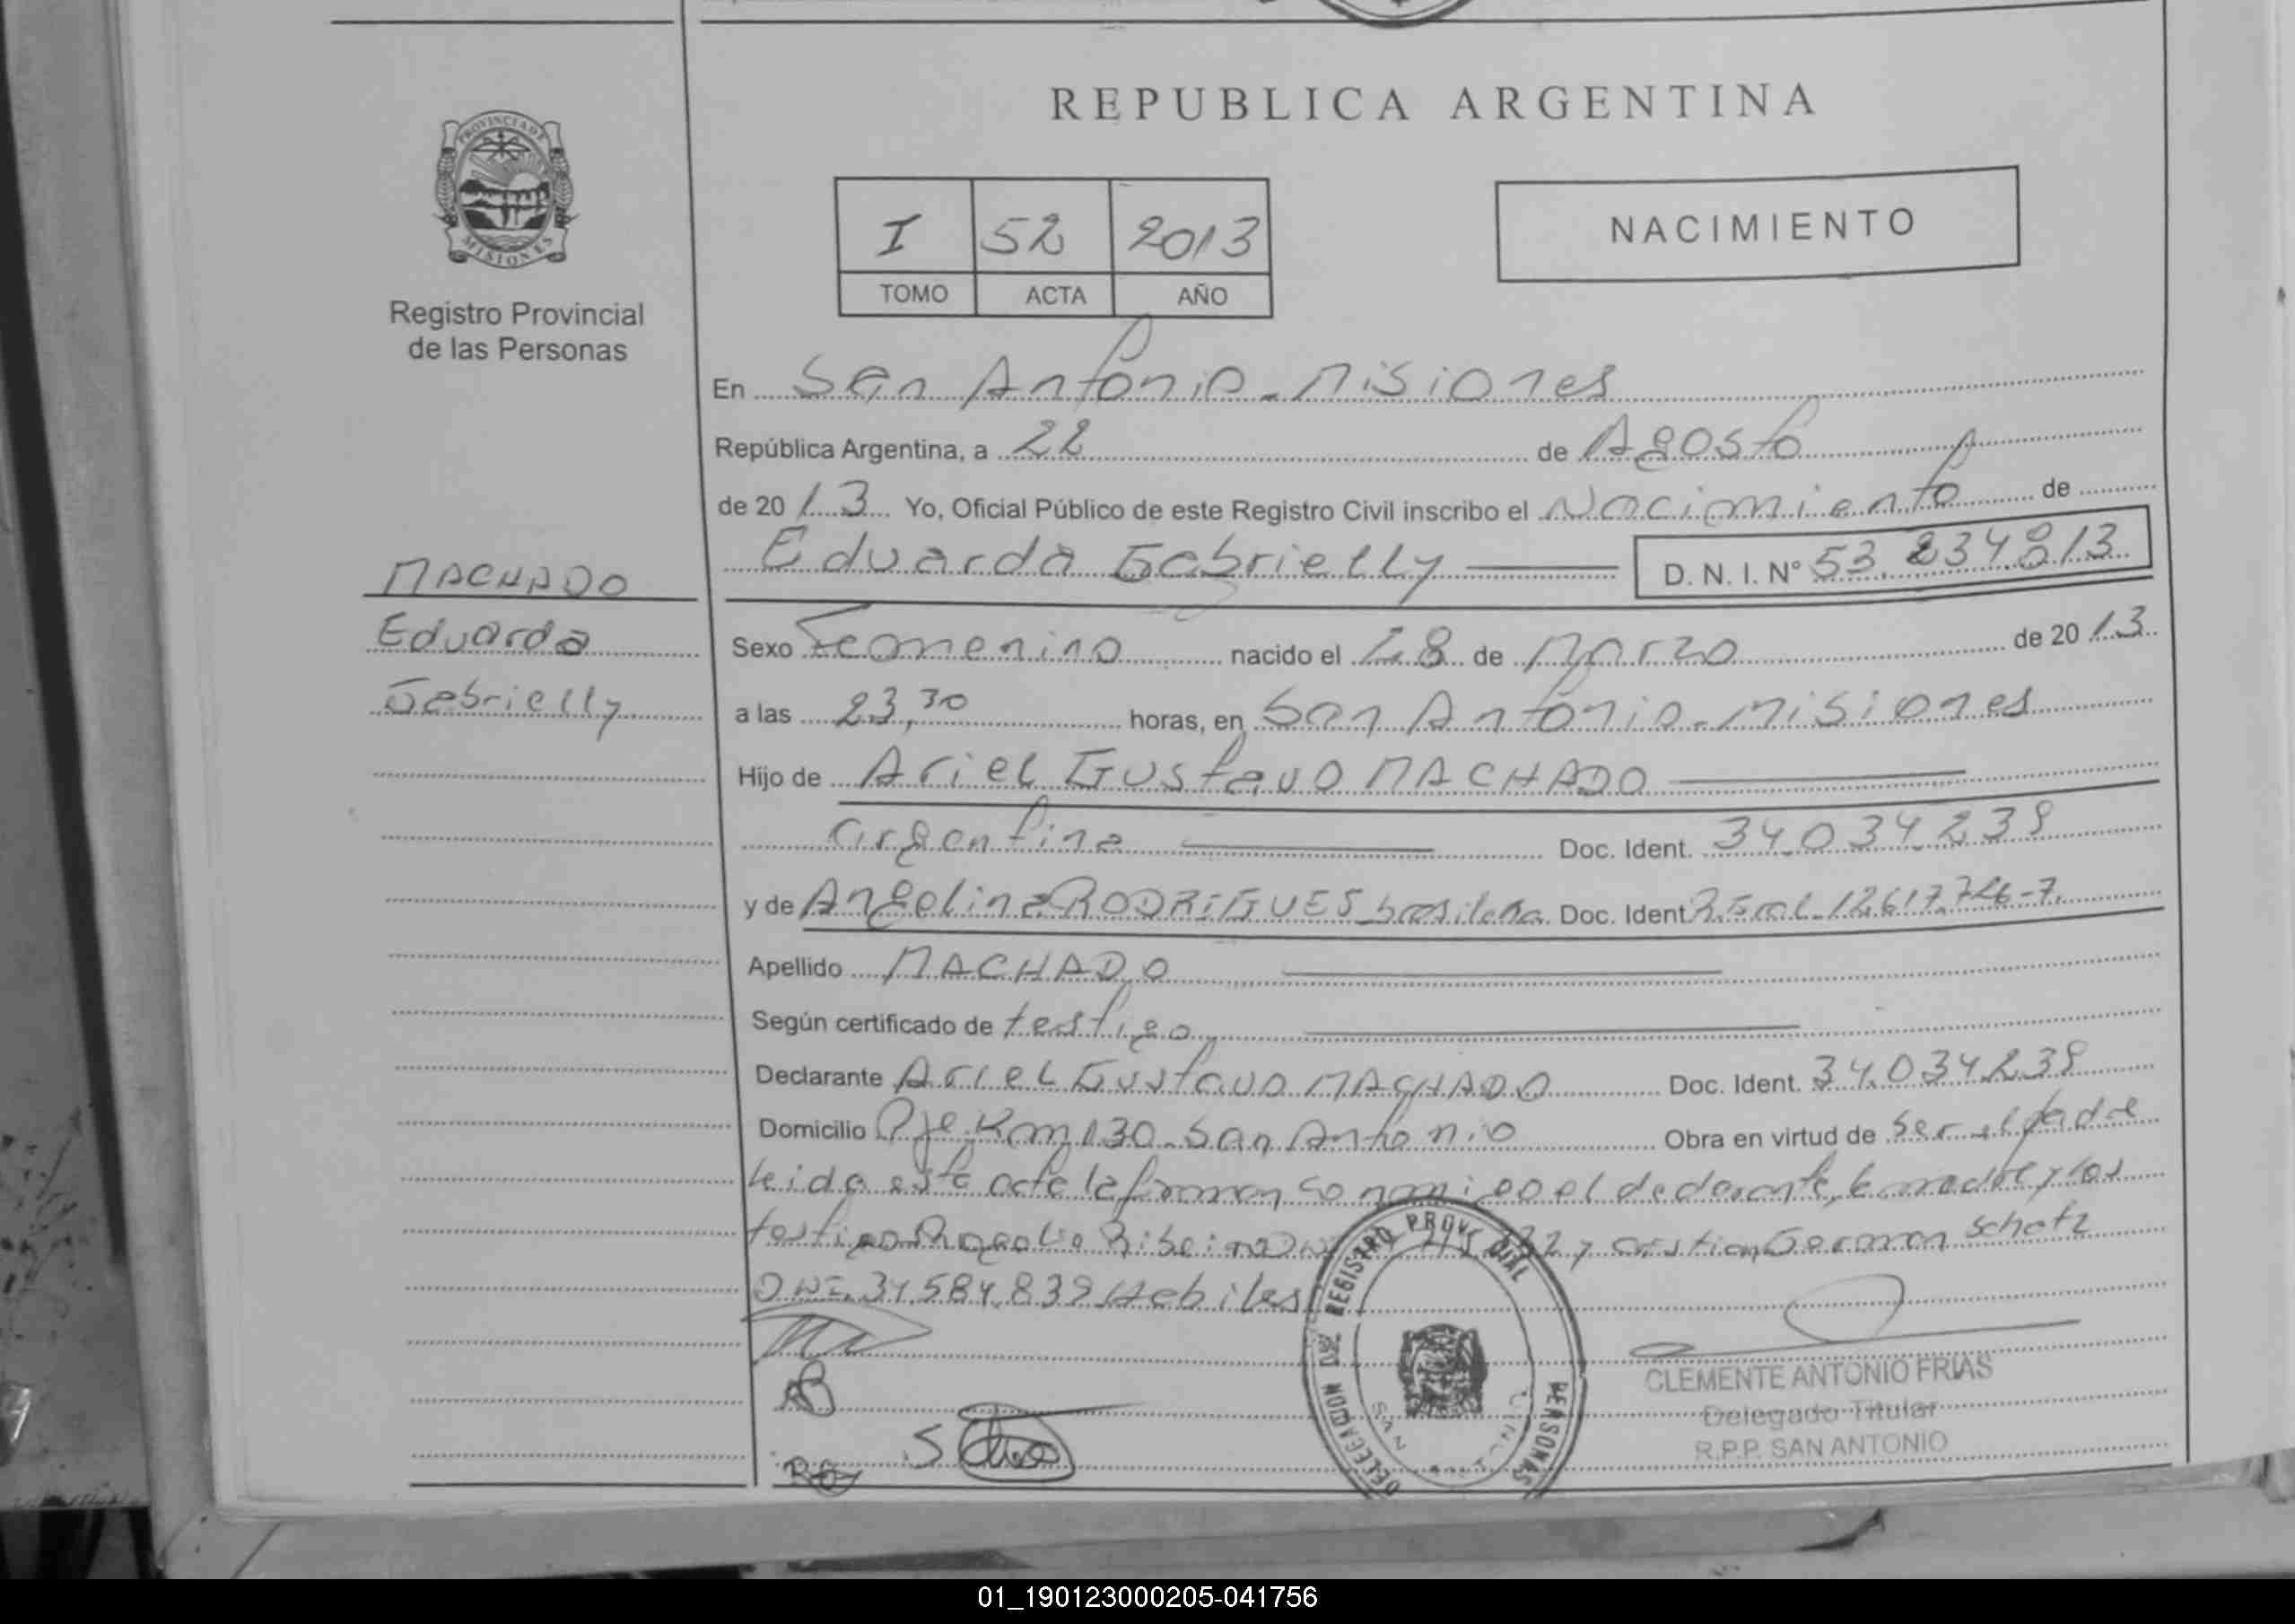 REPUBLICA ARGENTINA
PROVINCIA DE
MISIONES
Registro Provincial
de las Personas
I 52 2013
TOMO ACTA AÑO
NACIMIENTO
En San Antonio - Misiones
República Argentina, a 22 de Agosto
de 20 13 Yo, Oficial Público de este Registro Civil inscribo el Nacimiento de
Eduarda Gabrielly D. N. I. N° 53.234.813
MACHADO
Eduarda
Gabrielly
Sexo Femenino nacido el 28 de Marzo de 20 13
a las 23,30 horas, en San Antonio - Misiones
Hijo de Ariel Gustavo MACHADO
argentina Doc. Ident. 34.034.239
y de Angelina RODRIGUES brasileña Doc. Ident 12.617.746-7
Apellido MACHADO
Según certificado de testigo
Declarante Ariel Gustavo MACHADO Doc. Ident. 34.034.239
Domicilio Pje Km 130 - San Antonio Obra en virtud de ser el padre
leida esta acta la firman conmigo el declarante, la madre y los
testigos Ribeiro y Cristian German Schatz
DNI. 34.584.839 Habiles
DELEGACION DEL REGISTRO PROVINCIAL PERSONAS
SAN
CLEMENTE ANTONIO FRIAS
Delegado Titular
R.P.P. SAN ANTONIO
01_190123000205-041756